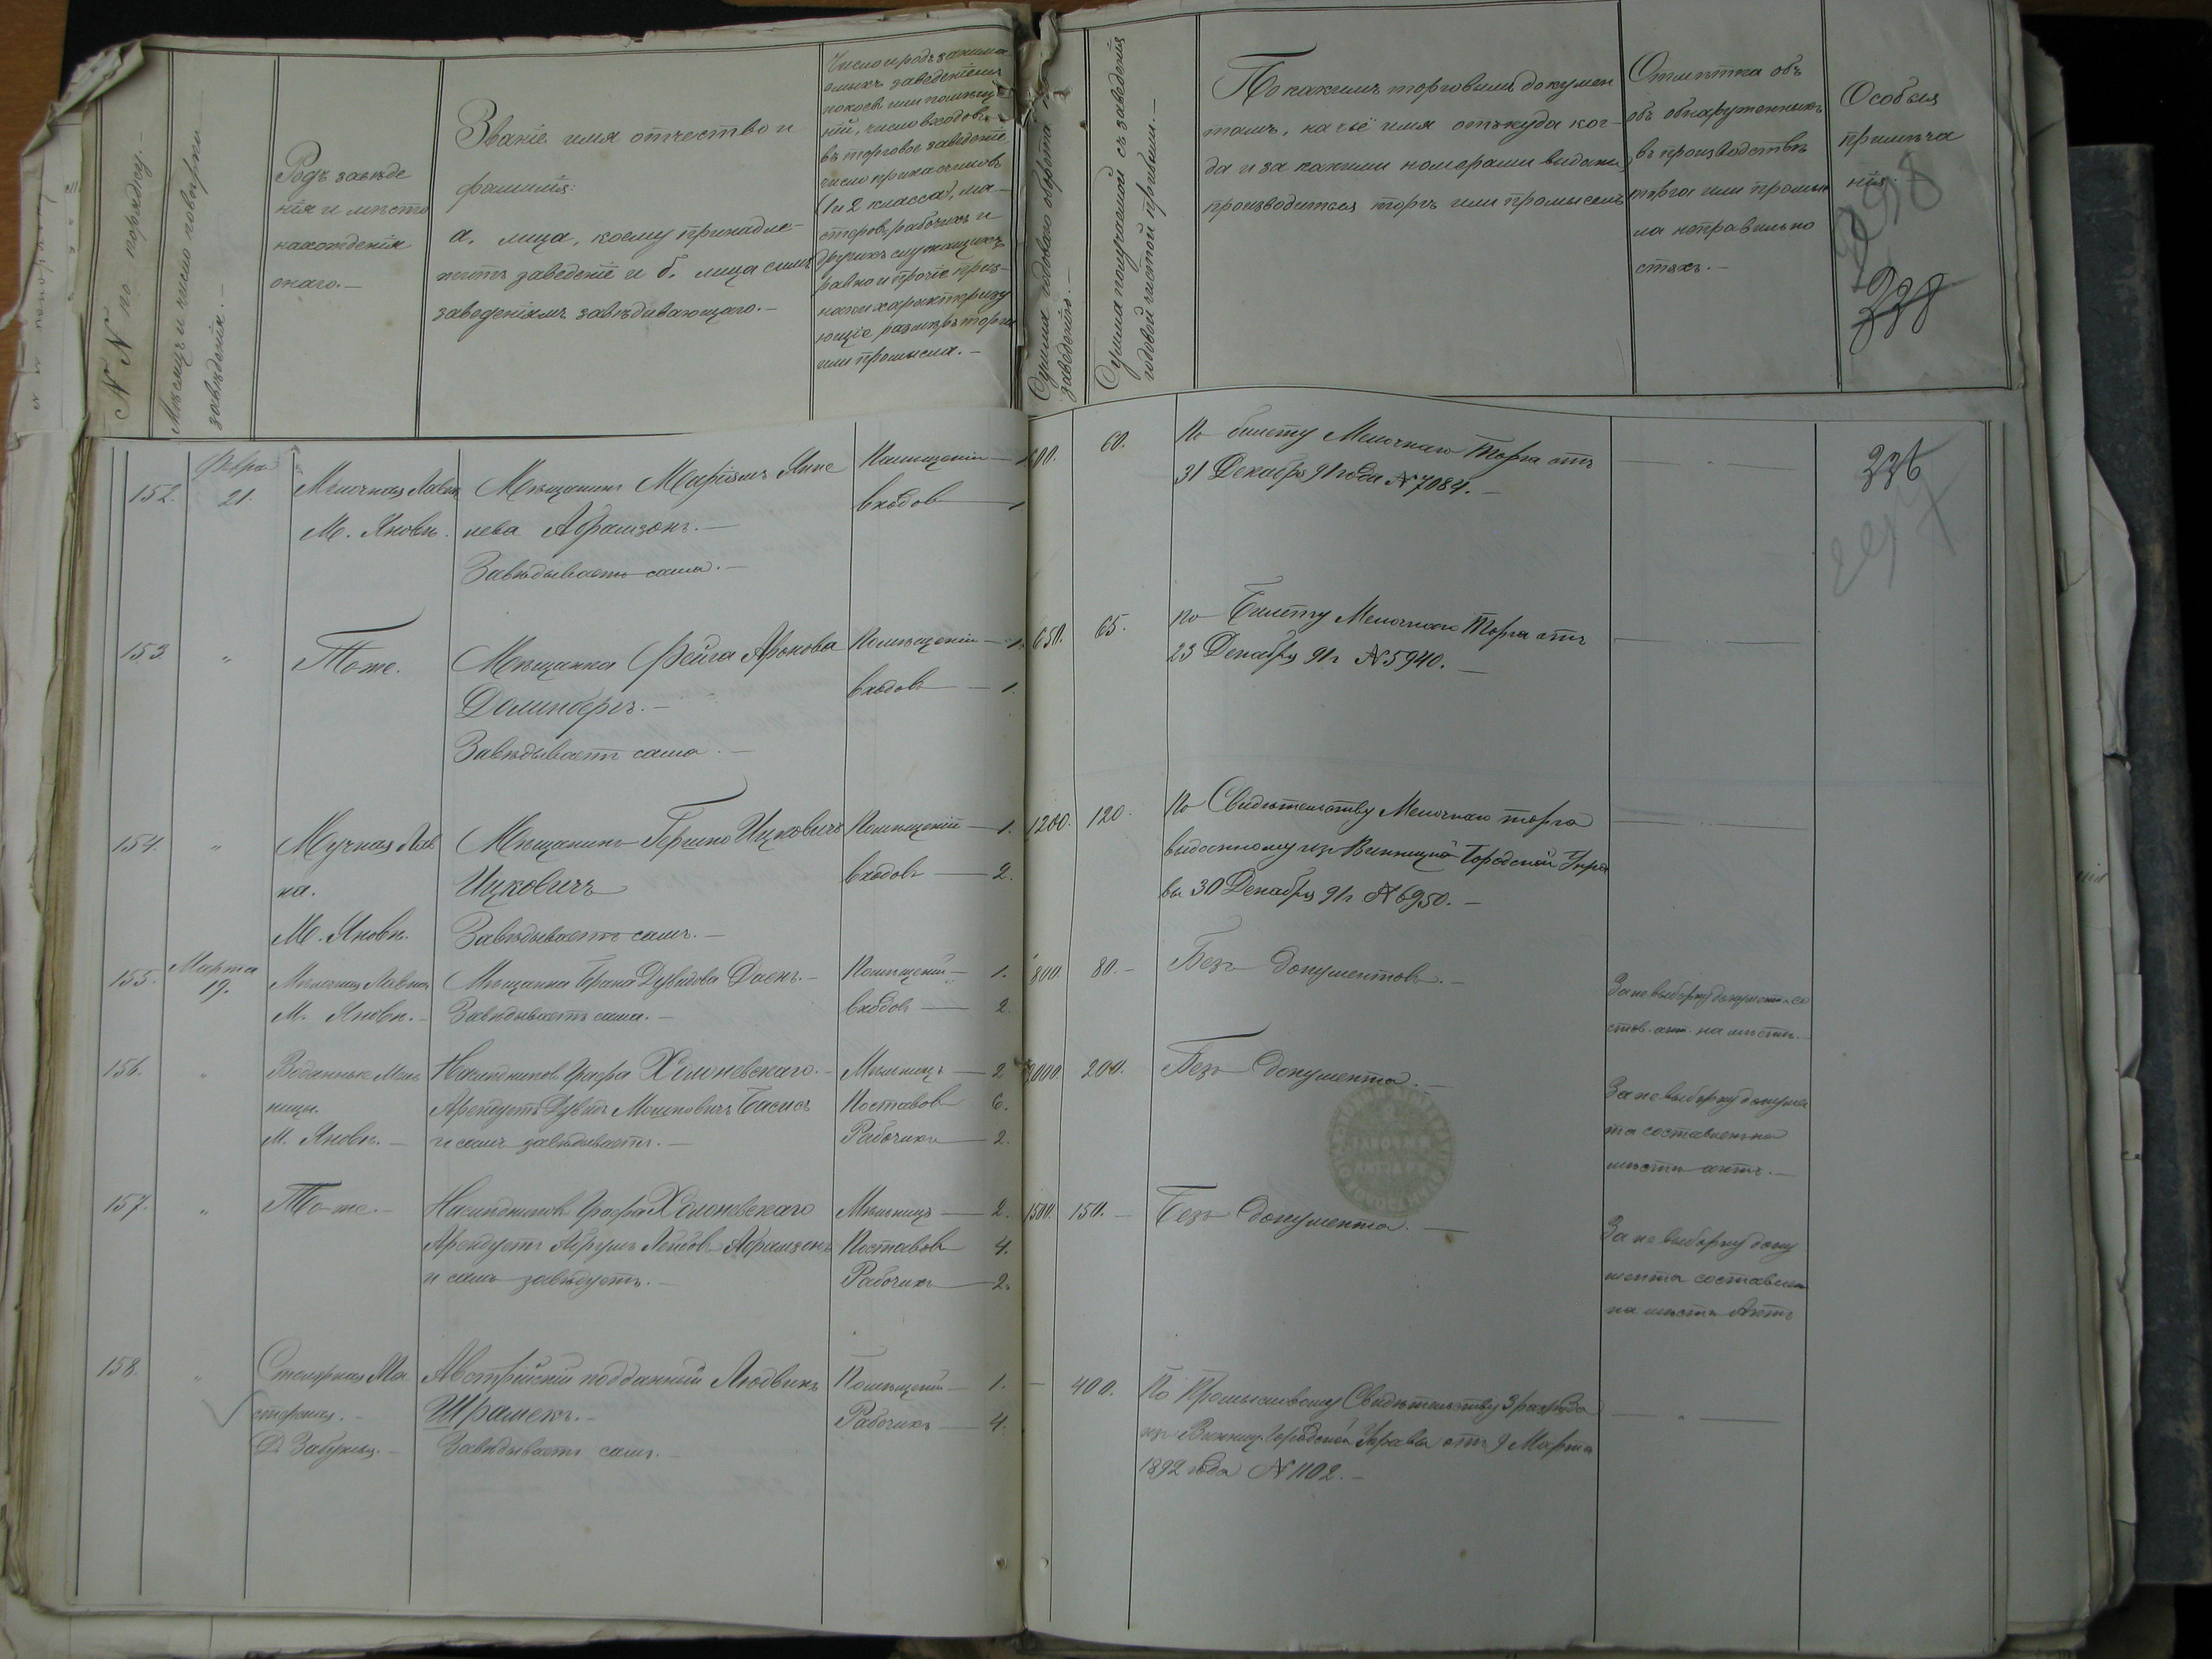 N N по порядку.
Мѣсяцъ и число повѣрки
завѣденія. —
Родъ завѣде
нія и мѣсто
нахожденія
онаго. —
Званіе имя отчество и
фамилія:
а. лица, коему принадле-
житъ заведеніе и б. лица симъ
заведеніямъ завѣдивающаго. —
Число и родъ занима
емыхъ заведеніемъ
покоевъ или помѣще
ній, число входовъ
въ торговое заведеніе
число прикащиковъ
(1 и 2 класса), ма-
стеровъ, рабочихъ и
другихъ служащихъ
равно и прочіе приз-
наки характеризу
ющіе размѣръ торга
или промысла. —
Сумма годоваго оборота
заведенія. —
Сумма получаемой съ заведенія
годовой чистой прибыли. —
По какимъ торговымъ докумен
тамъ, на чьё имя откуда ког-
да и за какими номерами видани
производится торгъ или промыселъ
Отмѣтка объ
объ обнаруженныхъ
въ производствѣ
торга или промыс
ла неправильно
стяхъ. —
Особыя
примѣча
нія.
298
328
152.
Февра
21.
Мелочная Лавка
М. Яновъ.
Мѣщанинъ
нева Абрамзонъ. —
Завѣдываетъ сама. —
Помѣщеній — 1
Входовъ — 1
600.
60.
По билету Мелочнаго Торга отъ
31 Декабря 91 года N 7084. —
— " —
326
297
153.
"
Тоже.
Мѣщанка Фейга Аронова
Долинберъ. —
Завѣдываетъ сама. —
Помѣщеній — 1.
Входовъ — 1.
650.
65.
По Билету Мелочнаго Торга отъ
23 Декабря 91 г N 5940. —
154.
"
Мучная Лав
ка.
М. Яновъ.
Мѣщанинъ Гершко Ицковичъ
Ицковичъ
Завѣдываетъ самъ. —
Помѣщеній — 1.
Входовъ — 2.
1200.
120.
По Свидѣтельству Мелочнаго торга
выданному изъ Винницкой Городской Упра
вы 30 Декабря 91 г N 6950. —
155.
Марта
19.
Мелочная Лавка
М. Яновъ. —
Мѣщанка Брана Дувидова —
Завѣдываетъ сама. —
Помѣщеній — 1.
Входовъ — 2.
800.
80. —
Безъ документовъ. —
За не выборку документа со
став. акт. на мѣстѣ. —
156.
"
Водянные Мель
ницы.
М. Яновъ. —
Наслѣдниковъ Графа Холоневскаго. —
Арендуетъ Дувидъ Мошковичъ Басисъ
и самъ завѣдываетъ. —
Мѣльницъ — 2
Поставовъ 6.
Рабочихъ — 2.
2000.
200.
Безъ документа. —
За не выборку докумен
та составленъ на
мѣстѣ актъ. —
157.
"
То-же. —
Наслѣдниковъ Графа Холоневскаго
Арендуетъ Абрумъ Лейбовъ Абрамзонъ
и самъ завѣдуетъ. —
Мѣльницъ — 2.
Поставовъ 4.
Рабочихъ — 2.
1500.
150. —
Безъ документа. —
За не выборку доку
мента составлен
на мѣстѣ Актъ
158.
"
Столярная Ма
стерская. —
Д. Забужья. —
Австрійскій подданный Людвикъ
Шрамекъ. —
Завѣдываетъ самъ. —
Помѣщеній — 1.
Рабочихъ — 4.
—
400.
По Промысловому Свидѣтельству 3 разряда
изъ Винниц. Городской Управы отъ 9 Марта
1892 года N 1102. —
— " —